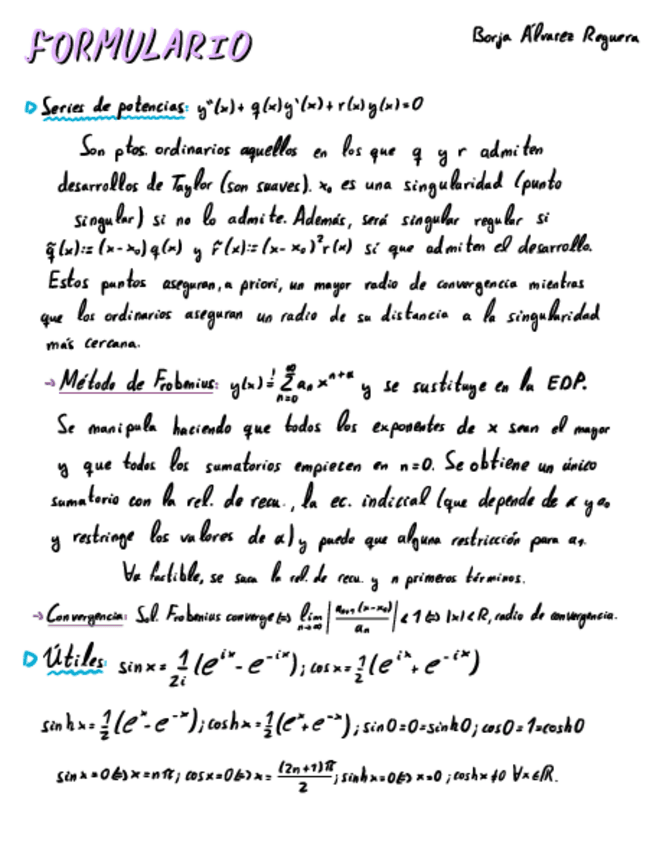 FORMULARIO
Borja Álvarez Reguera
Series de potencias: y''(x) + q(x)y'(x) + r(x)y(x) = 0
Son ptos. ordinarios aquellos en los que q y r admiten
desarrollos de Taylor (son suaves). x₀ es una singularidad (punto
singular) si no lo admite. Además, será singular regular si
q̃(x) := (x-x₀)q(x) y r̃(x) := (x-x₀)²r(x) sí que admiten el desarrollo.
Estos puntos aseguran, a priori, un mayor radio de convergencia mientras
que los ordinarios aseguran un radio de su distancia a la singularidad
más cercana.
→ Método de Frobenius: y(x) =! ∑_{n=0}^∞ aₙ x^{n+α} y se sustituye en la EDP.
Se manipula haciendo que todos los exponentes de x sean el mayor
y que todos los sumatorios empiecen en n=0. Se obtiene un único
sumatorio con la rel. de recu., la ec. indicial (que depende de α y a₀
y restringe los valores de α) y puede que alguna restricción para a₁.
∀α factible, se saca la rel. de recu. y n primeros términos.
→ Convergencia: Sol. Frobenius converge ⇔ lim_{n→∞} |aₙ₊₁(x-x₀)/aₙ| < 1 ⇔ |x| < R, radio de convergencia.
Útiles: sin x = 1/2i (e^{ix} - e^{-ix}); cos x = 1/2 (e^{ix} + e^{-ix})
sinh x = 1/2 (e^x - e^{-x}); cosh x = 1/2 (e^x + e^{-x}); sin 0 = 0 = sinh 0; cos 0 = 1 = cosh 0
sin x = 0 ⇔ x = nπ; cos x = 0 ⇔ x = (2n+1)π/2; sinh x = 0 ⇔ x = 0; cosh x ≠ 0 ∀x ∈ ℝ.